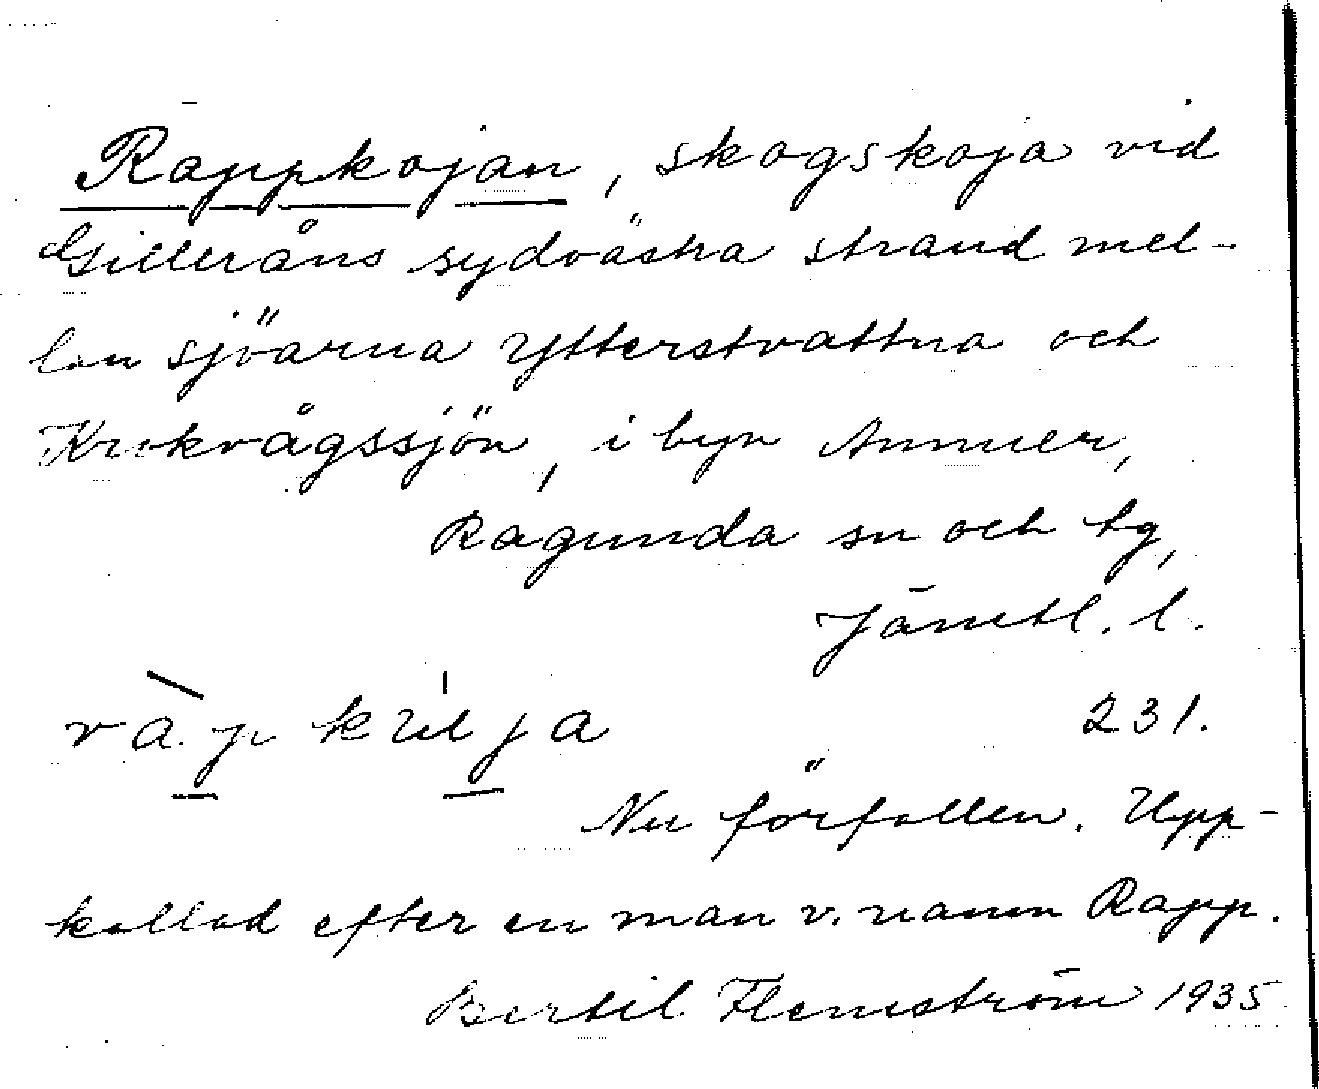 Rappkojan, skogskoja vid
Gilleråns sydvästra strand mel-
lan sjöarna Ytterstvattna och
Krokvågssjön, i byn Ammer,
Ragunda sn och tg,
Jämtl. l.
231.
Nu förfallen. Upp-
kallad efter en man v. namn Rapp.
Bertil Flemström 1935